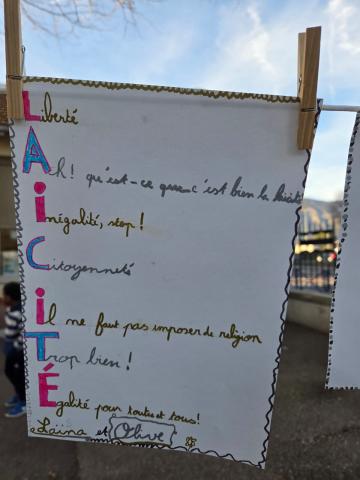 Liberté
Ah! qu'est-ce que c'est bien la laïcité
Inégalité, stop!
Citoyenneté
Il ne faut pas imposer de religion
Trop bien!
Égalité pour toutes et tous!
Laïna et Olive